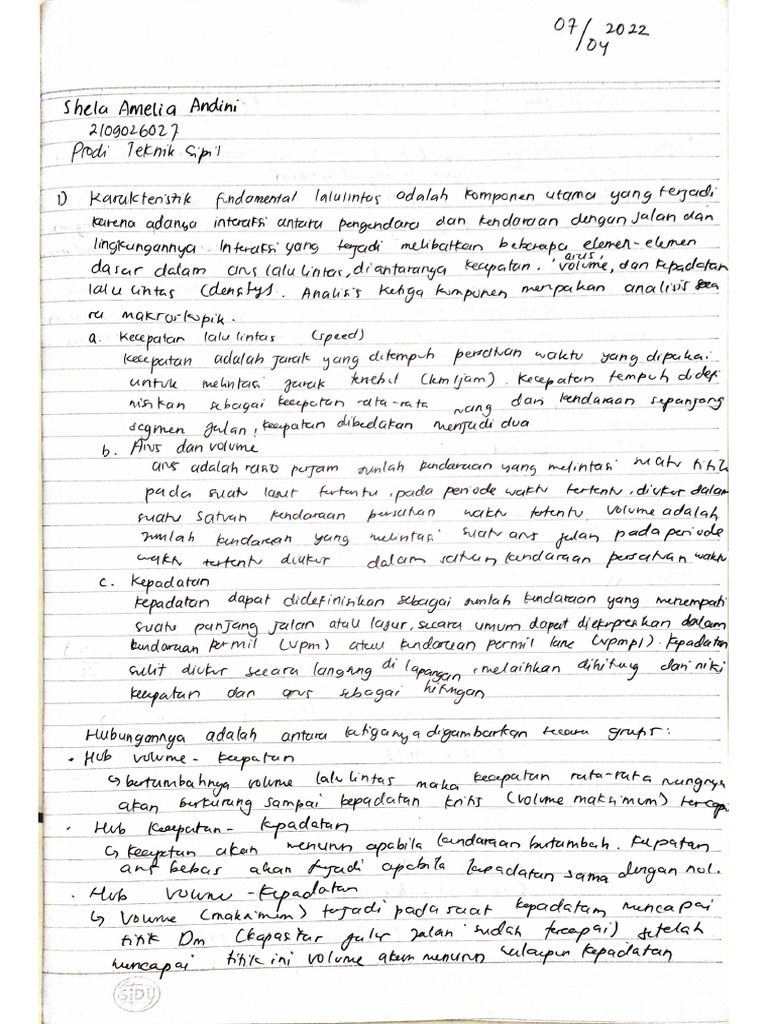 07/04 2022
Shela Amelia Andini
2109026027
Prodi Teknik Sipil
1) Karakteristik fundamental lalulintas adalah komponen utama yang terjadi
karena adanya interaksi antara pengendara dan kendaraan dengan jalan dan
lingkungannya. Interaksi yang terjadi melibatkan beberapa elemen-elemen
dasar dalam arus lalu lintas, diantaranya kecepatan, arus, volume, dan kepadatan
lalu lintas (density). Analisis ketiga komponen merupakan analisis seca
ra makroskopik.
a. Kecepatan lalu lintas (speed)
kecepatan adalah jarak yang ditempuh persatuan waktu yang dipakai
untuk melintasi jarak tersebut (km/jam). Kecepatan tempuh didefi
nisikan sebagai kecepatan rata-rata ruang dari kendaraan sepanjang
segmen jalan, kecepatan dibedakan menjadi dua
b. Arus dan volume
arus adalah rasio perjam jumlah kendaraan yang melintasi suatu titik
pada suatu lajur tertentu, pada periode waktu tertentu, diukur dalam
suatu satuan kendaraan persatuan waktu tertentu. Volume adalah
jumlah kendaraan yang melintasi suatu arus jalan pada periode
waktu tertentu diukur dalam satuan kendaraan persatuan waktu
c. Kepadatan
kepadatan dapat didefinisikan sebagai jumlah kendaraan yang menempati
suatu panjang jalan atau lajur, secara umum dapat diekspresikan dalam
kendaraan permil (vpm) atau kendaraan permil lane (vpmpl). Kepadatan
sulit diukur secara langsung di lapangan, melainkan dihitung dari nilai
kecepatan dan arus sebagai hitungan
Hubungannya adalah antara ketiganya digambarkan secara grafis:
• Hub volume - kecepatan
↳ bertambahnya volume lalu lintas maka kecepatan rata-rata ruangnya
akan berkurang sampai kepadatan kritis (volume maksimum) tercapai
• Hub Kecepatan - kepadatan
↳ Kecepatan akan menurun apabila kendaraan bertambah. Kecepatan
arus bebas akan terjadi apabila kepadatan sama dengan nol.
• Hub Volume - Kepadatan
↳ Volume (maksimum) terjadi pada saat kepadatan mencapai
titik Dm (kapasitas jalur jalan sudah tercapai) setelah
mencapai titik ini volume akan menurun walaupun kepadatan
SiDU